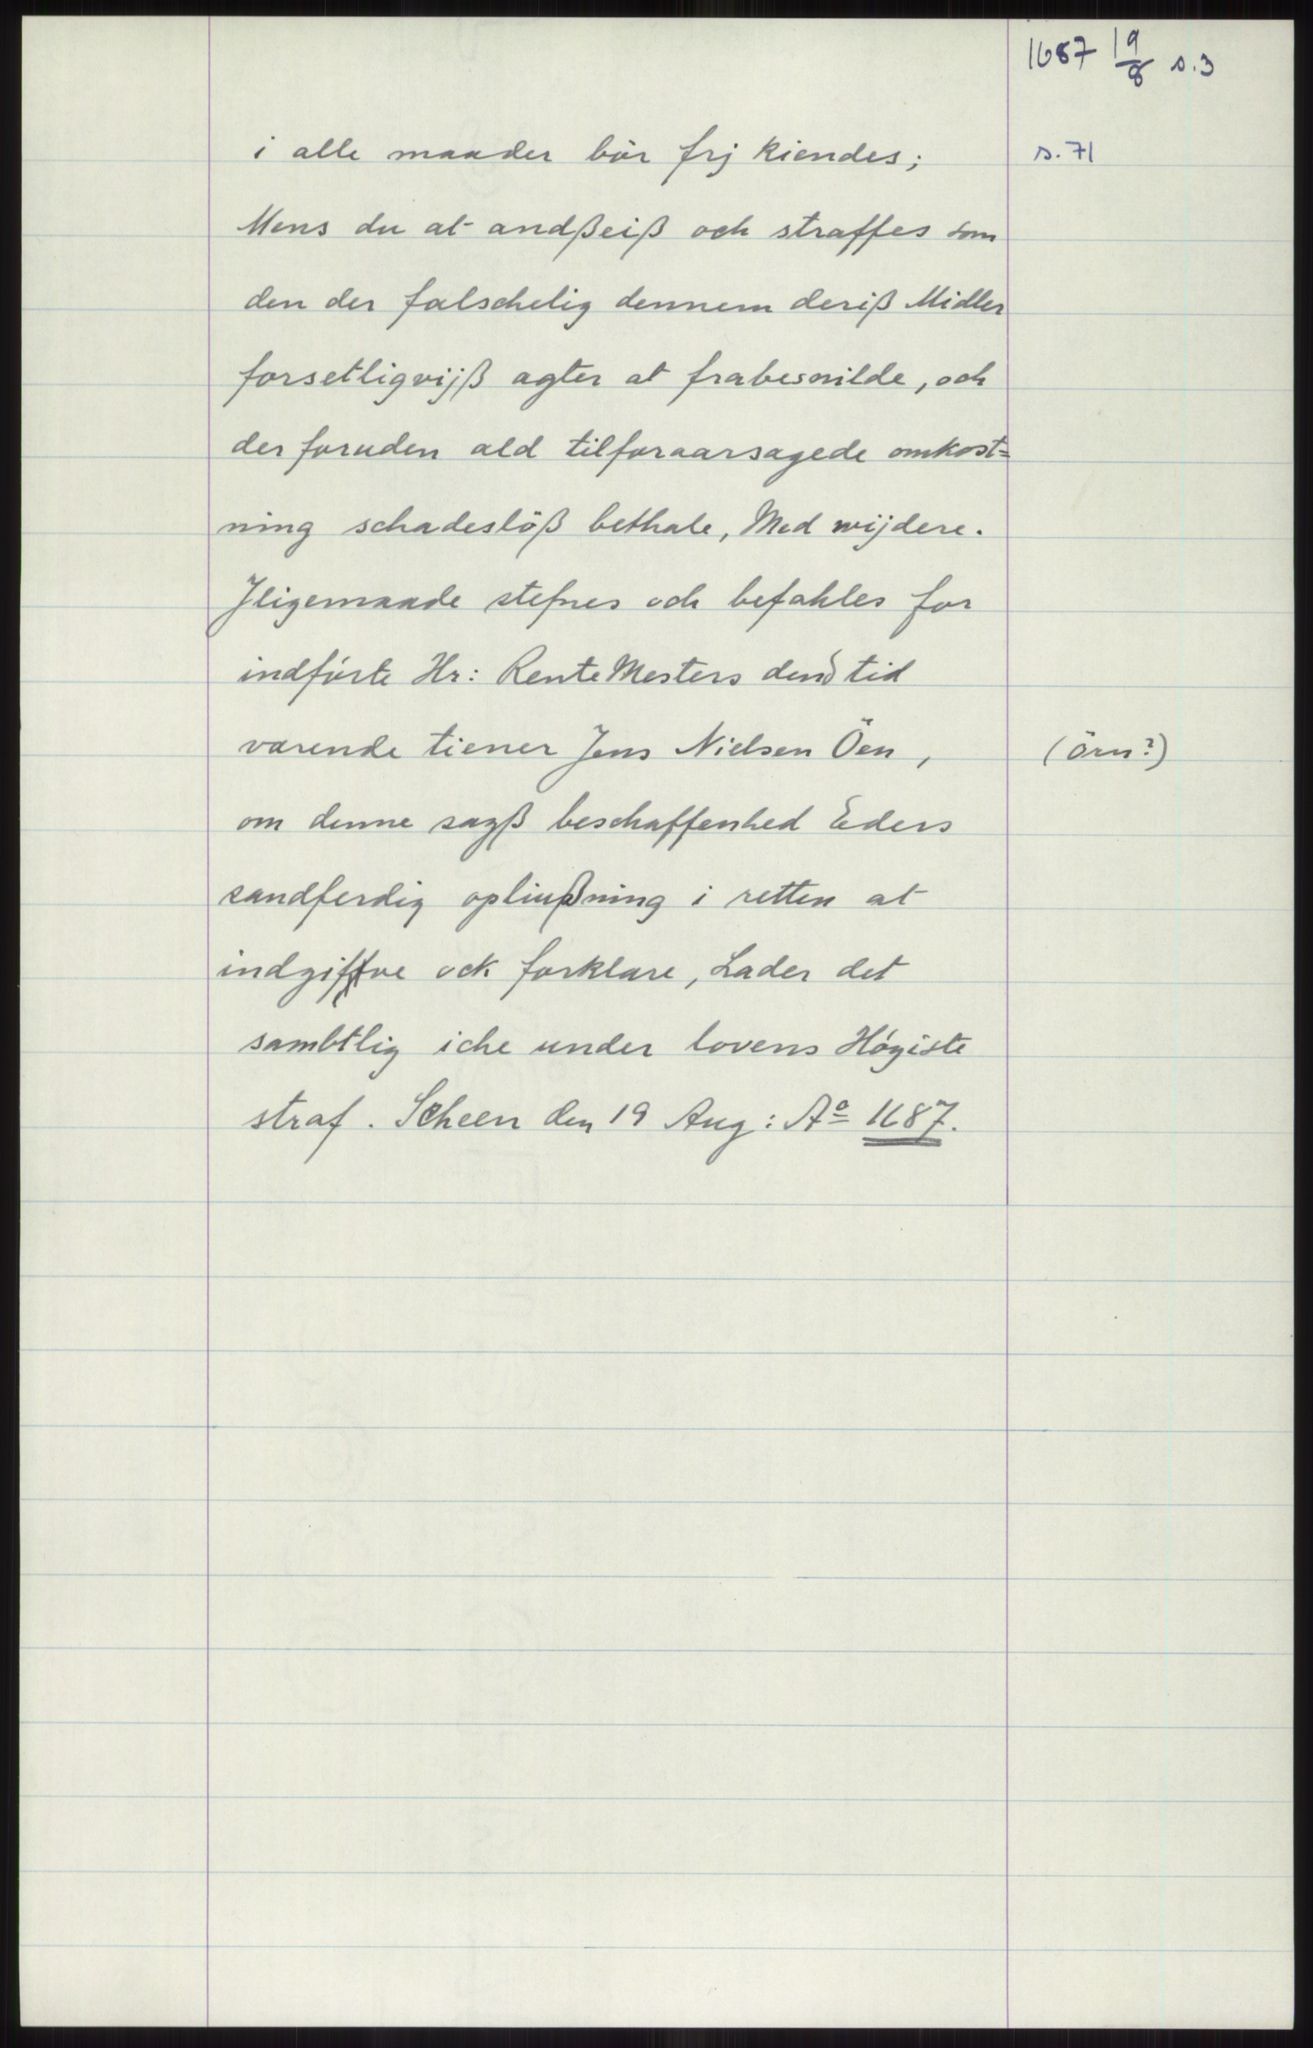 1687 19/8 s.3
i alle maader bör frj kiendes; s. 71
Mens du at andßeiß och straffes som
den der falschelig dennem deriß Midler
forsetligvijß agter at frabesnilde, och
der foruden ald tilforaarsagede omkost=
ning schadeslöß bethale, Med wijdere.
Jligemaade stefnes och befahles for
indförte Hr: RenteMesters dend tid
varende tiener Jens Nielsen Öen, (örn?)
om denne sagß beschaffenhed Eders
sandferdig opliußning i retten at
indgiffve och forklare, Lader det
sambtlig iche under lovens Högiste
straf. Scheen den 19 Aug: Aº 1687.